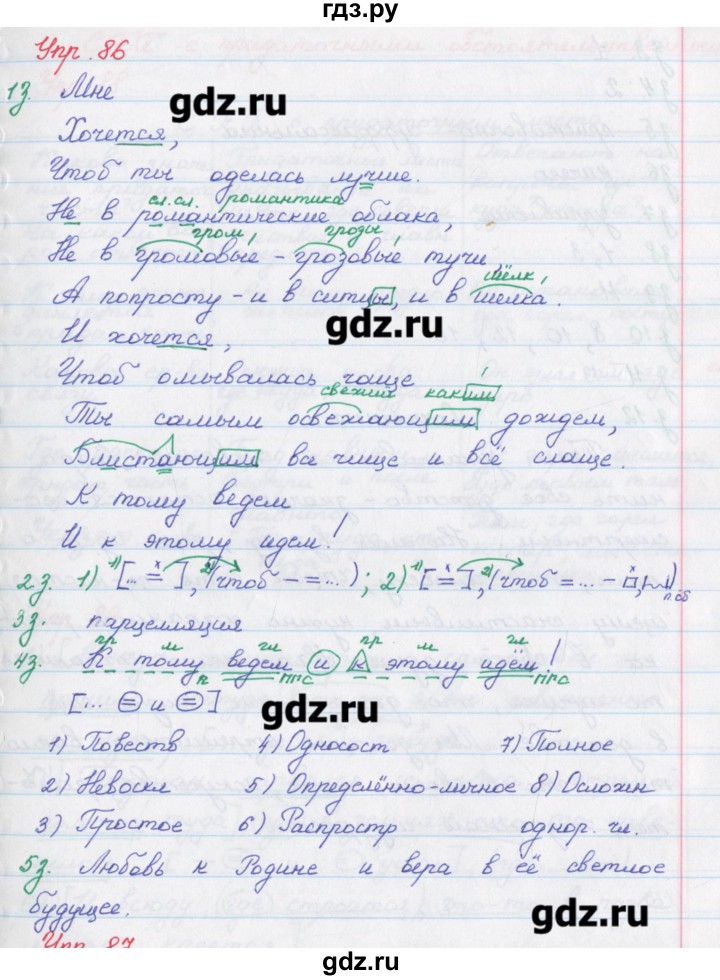 гдз.ру
Упр. 86
1з. Мне
gdz.ru
Хочется,
Чтоб ты оделась лучше.
сл.сл. романтика
Не в романтические облака,
гром грозы
Не в громовые - грозовые тучи,
шёлк
А попросту - и в ситцы, и в шелка.
gdz.ru
И хочется,
Чтоб омывалась чаще
свежий каким
Ты самым освежающим дождем,
Блистающим всё чище и всё слаще.
К тому ведем
И к этому идем!
2з. 1) [... =], (чтоб - = ...); 2) [=], (чтоб = ... -
п об
3з. парцелляция
пр м гл пр м гл
4з. К тому ведем и к этому идём!
п пгс пгс
[... = и =]
gdz.ru
1) Повеств 4) Односост 7) Полное
2) Невоскл 5) Определённо-личное 8) Осложн
3) Простое 6) Распростр однор. чл.
5з. Любовь к Родине и вера в её светлое
будущее.
gdz.ru
Упр. 87
gdz.ru